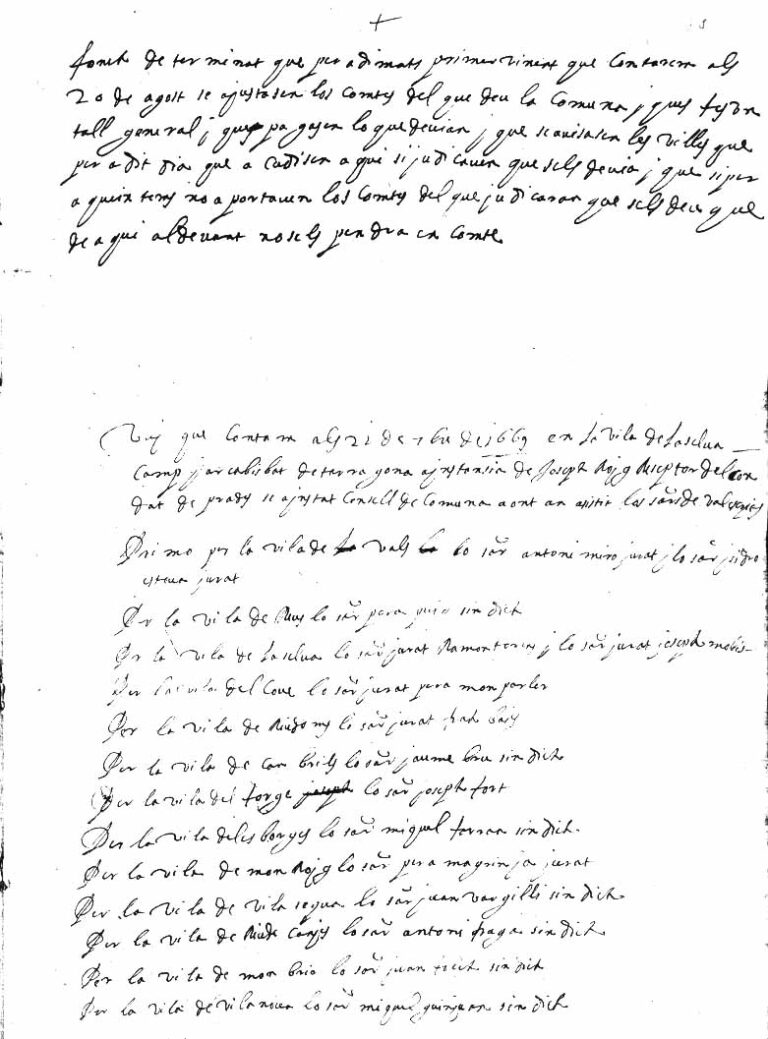 +
fonch de terminat que per a dimats primer vinent que Contarem als
20 de agost se ajustasen los Comtes del que deu la Comuna j ques fes un
tall general j ques pa gasen lo que devian j que se avisasen les villes que
per a dit dia que a cudisen a qui si judicaven que sels devia j que si per
a quein temps no a portaven los Comtes del que judicaran que sels deu que
de a qui al devant no sels pendra en Comte
Vuj que Contam als 21 de 7bre de 1669 en la vila de la selva
Camp j arcabisbat de tarra gona a instansia de Joseph Rojg Reseptor del Con
dat de prades se ajustat Consell de Comuna a ont an asistit los sărs de
Primo per la vila de vals lo săr antoni miro jurat j lo săr isidro
esteva jurat
Per la vila de Reus lo săr pera sindich
Per la vila de la selva lo săr jurat Ramon j lo săr jurat joseph
Per la vila del Cove lo săr jurat pera mon parler
Per la vila de Riudoms lo săr jurat
Per la vila de Cam brils lo săr jaume bru sin dich
Per la vila del forge joseph lo săr joseph fort
Per la vila de les borges lo săr miquel ferran sin dich
Per la vila de mon Rojg lo săr pera magrin ja jurat
Per la vila de vila segua lo săr juan vargilli sin dich
Per la vila de Riude Canjes lo săr antoni fraga sin dich
Per la vila de mon brio lo săr juan sin dich
Per la vila de vila nova lo săr miquel sin dich